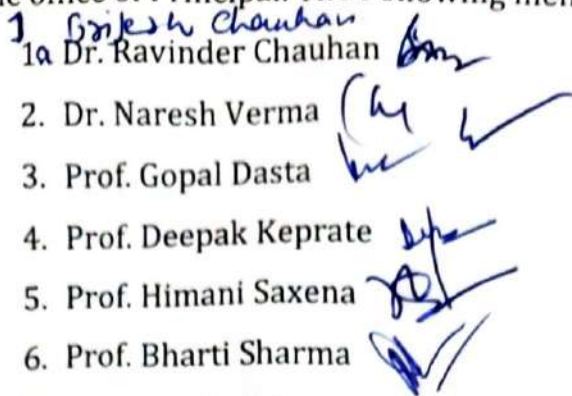 1 Brijesh Chauhan
1a Dr. Ravinder Chauhan
2. Dr. Naresh Verma
3. Prof. Gopal Dasta
4. Prof. Deepak Keprate
5. Prof. Himani Saxena
6. Prof. Bharti Sharma